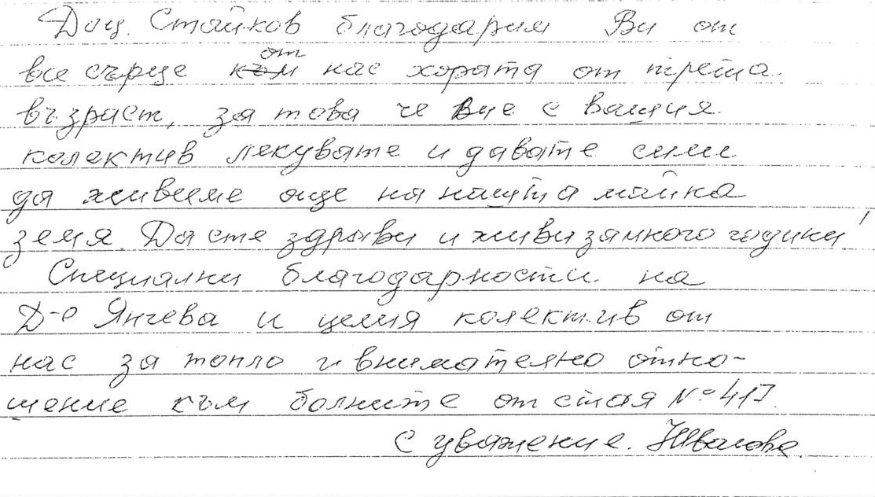 Доц. Стойков благодарим Ви от
все сърце от нас хората от трета
възраст, за това че Вие с вашия
колектив лекувате и давате сили
да живееме още на нашта майка
земя. Да сте здрави и живи за много годинки!
Специални благодарности на
Д-р Янчева и целия колектив от
нас за топло и внимателно отно-
шение към болните от стая №
С уважение.